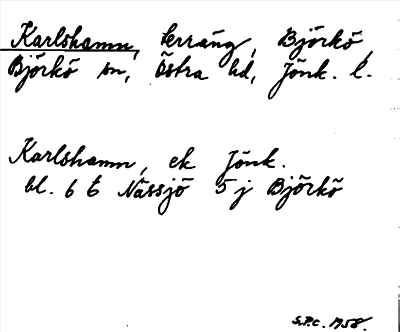 Karlshamn, terräng, Björkö,
Björkö sn, Östra hd, Jönk. l.
Karlshamn, ek Jönk.
bl. 6 t Nässjö 5 j Björkö
S.P.C. 1958.